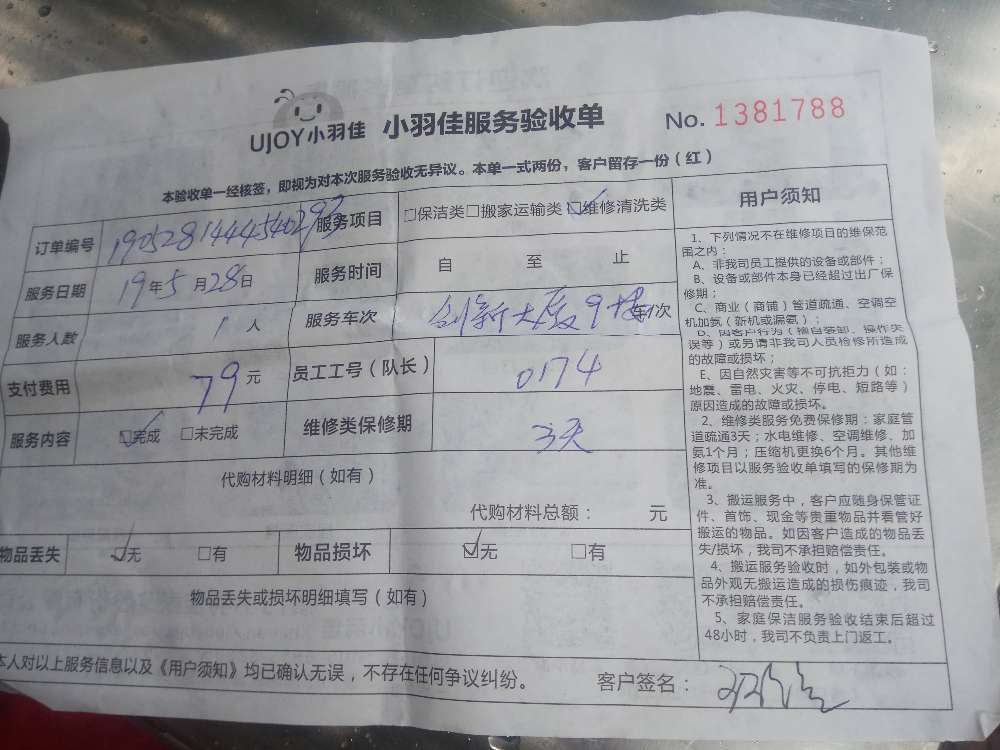 UJOY小羽佳 小羽佳服务验收单 No. 1381788
本验收单一经核签，即视为对本次服务验收无异议。本单一式两份，客户留存一份（红）
订单编号 190528144454029 服务项目 □保洁类□搬家运输类☑维修清洗类
服务日期 19年5月28日 服务时间 自 至 止
服务人数 1人 服务车次 创新大厦9楼 车/次
支付费用 79元 员工工号（队长） 0174
服务内容 ☑完成 □未完成 维修类保修期 3天
代购材料明细（如有）
代购材料总额： 元
物品丢失 ☑无 □有 物品损坏 ☑无 □有
物品丢失或损坏明细填写（如有）
本人对以上服务信息以及《用户须知》均已确认无误，不存在任何争议纠纷。 客户签名：
用户须知
1、下列情况不在维修项目的维保范
围之内：
A、非我司员工提供的设备或部件；
B、设备或部件本身已经超过出厂保
修期；
C、商业（商铺）管道疏通、空调空
机加氨（新机或漏氨）；
D、因客户行为（擅自装卸、操作失
误等）或另请非我司人员检修所造成
的故障或损坏；
E、因自然灾害等不可抗拒力（如：
地震、雷电、火灾、停电、短路等）
原因造成的故障或损坏。
2、维修类服务免费保修期：家庭管
道疏通3天；水电维修、空调维修、加
氨1个月；压缩机更换6个月。其他维
修项目以服务验收单填写的保修期为
准。
3、搬运服务中，客户应随身保管证
件、首饰、现金等贵重物品并看管好
搬运的物品。如因客户造成的物品丢
失/损坏，我司不承担赔偿责任。
4、搬运服务验收时，如外包装或物
品外观无搬运造成的损伤痕迹，我司
不承担赔偿责任。
5、家庭保洁服务验收结束后超过
48小时，我司不负责上门返工。